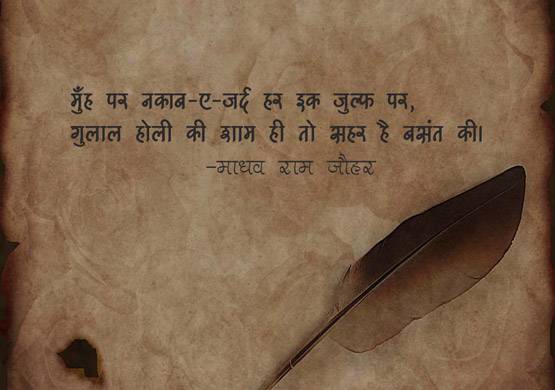 मुँह पर नकाब-ए-जर्द हर इक जुल्फ पर,
गुलाल होली की शाम ही तो सहर है बसंत की।
-माधव राम जौहर